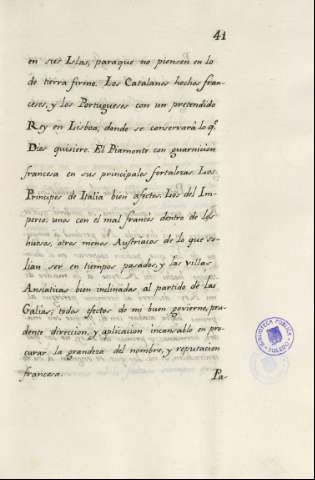 41
en sus Islas, paraque no piensen en lo
de tierra firme. Los Catalanes hechos fran-
ceses, y los Portugueses con un pretendido
Rey en Lisboa, donde se conservará lo q.
Dios quisiere. El Piamonte con guarnicion
francesa en sus principales fortalezas. Los
Principes de Italia bien afectos. Los del Im-
perio, unos con el mal francés dentro de los
huesos, otros menos Austriacos de lo que so-
lian ser en tiempos pasados, y las villas
Ansiaticas bien inclinadas al partido de las
Galias; todos efectos de mi buen govierno, pru-
dente direccion, y aplicacion incansable en pro-
curar la grandeza del nombre, y reputacion
francesa. Pa-
BIBLIOTECA PUBLICA
TOLEDO